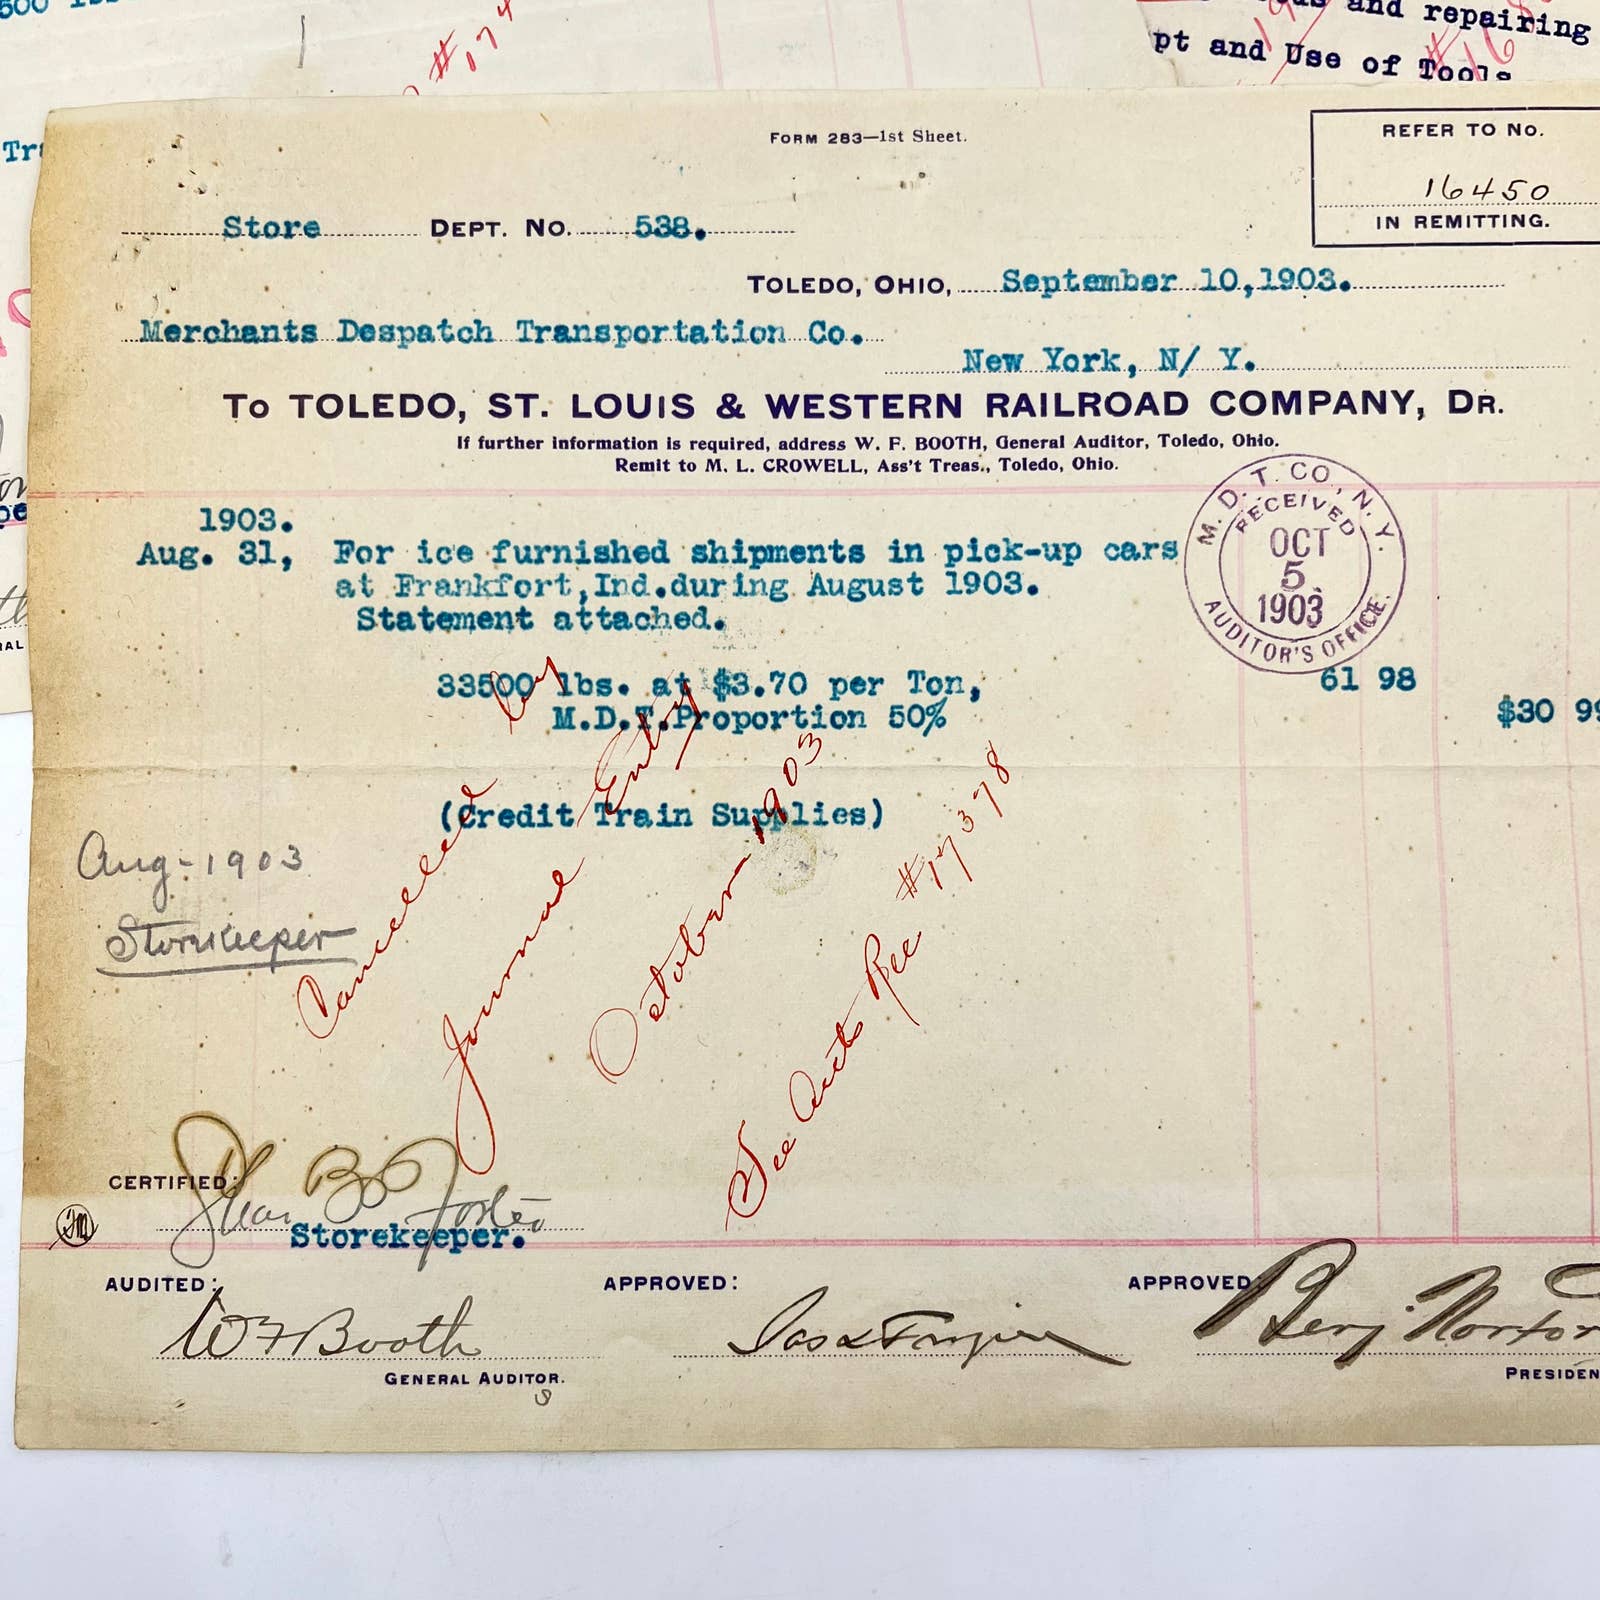 and repairing
pt and Use of Tools
FORM 283—1st Sheet.
REFER TO No.
16450
IN REMITTING.
Store DEPT. NO. 538.
TOLEDO, OHIO, September 10,1903.
Merchants Despatch Transportation Co.
New York, N/ Y.
To TOLEDO, ST. LOUIS & WESTERN RAILROAD COMPANY, DR.
If further information is required, address W. F. BOOTH, General Auditor, Toledo, Ohio.
Remit to M. L. CROWELL, Ass't Treas., Toledo, Ohio.
M. D. T. CO., N. Y.
RECEIVED
OCT
5
1903
AUDITOR'S OFFICE.
1903.
Aug. 31, For ice furnished shipments in pick-up cars
at Frankfort,Ind.during August 1903.
Statement attached.
33500 lbs. at $3.70 per Ton, 61 98
M.D.T.Proportion 50% $30 99
(Credit Train Supplies)
Cancelled by
Journal Entry
October 1903
See Aud's Rec #17378
Aug-1903
Storekeeper
CERTIFIED:
Storekeeper.
AUDITED:
WF Booth
GENERAL AUDITOR.
APPROVED:
APPROVED:
Benj Norton
PRESIDEN